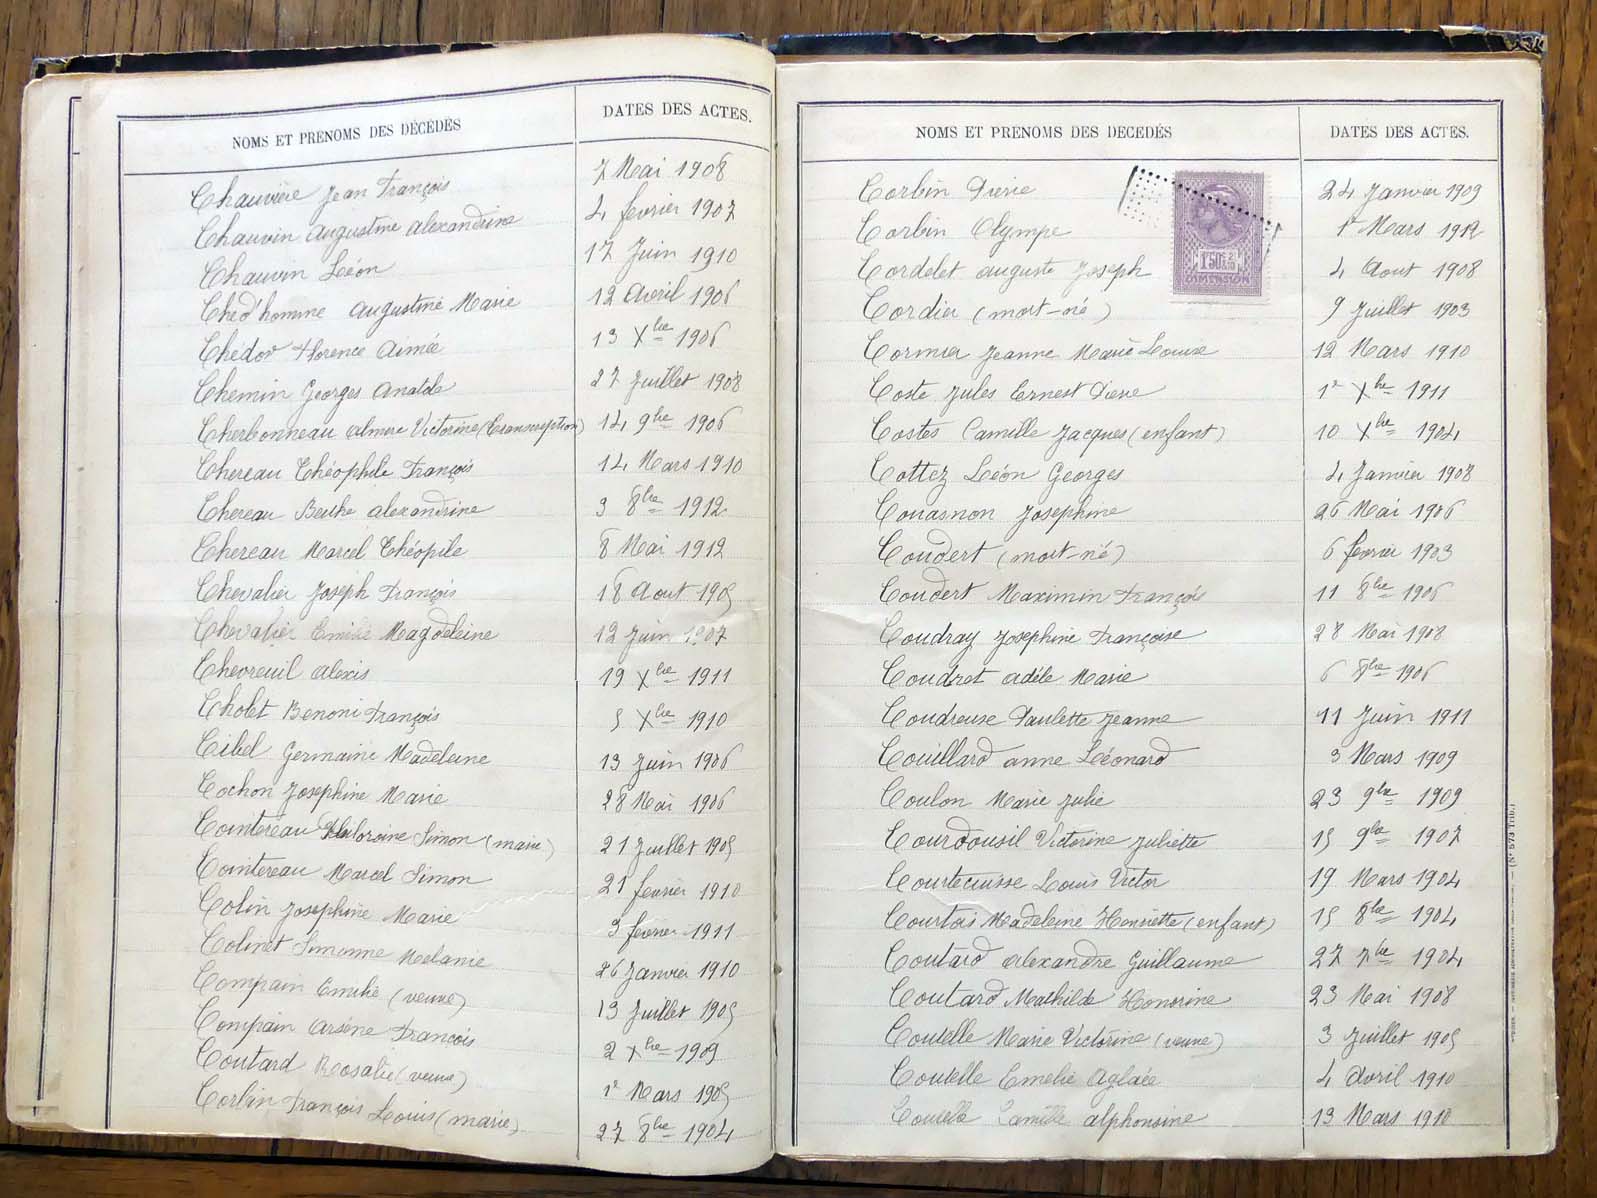 NOMS ET PRENOMS DES DÉCÉDÉS DATES DES ACTES.
Chauvière Jean François 7 Mai 1908
Chauvin Augustine Alexandrine 4 fevrier 1907
Chauvin Léon 17 Juin 1910
Ched'homme Augustine Marie 12 Avril 1906
Chédor Florence Aimée 13 Xbre 1906
Chemin Georges Anatole 27 Juillet 1908
Cherbonneau Victorine (Transcription) 14 9bre 1906
Chereau Théophile François 14 Mars 1910
Chereau Berthe Alexandrine 3 8bre 1912
Chereau Marcel Théopile 8 Mai 1912
Chevalier Joseph François 18 Aout 1905
Chevalier Emilie Magdeleine 12 Juin 1907
Chevreuil Alexis 19 Xbre 1911
Cholet Benoni François 5 Xbre 1910
Cibel Germaine Madeleine 13 Juin 1906
Cochon Josephine Marie 28 Mai 1906
Cointereau Simon (marié) 21 Juillet 1905
Cointereau Marcel Simon 21 fevrier 1910
Colin Josephine Marie 3 fevrier 1911
Colinet Simonne Melanie 26 Janvier 1910
Compain Emilie (veuve) 13 Juillet 1905
Compain Arsène François 2 Xbre 1909
Coutard Rosalie (veuve) 1r Mars 1905
Corbin François Louis (marié) 27 8bre 1904
NOMS ET PRENOMS DES DECEDÉS DATES DES ACTES.
Corbin Pierre 24 Janvier 1909
Corbin Olympe 1r Mars 1912
Cordelet Auguste Joseph 4 Aout 1908
1F50
DIMENSION
Cordier (mort-né) 9 Juillet 1903
Cormier Jeanne Marie Louise 12 Mars 1910
Coste Jules Ernest Pierre 1r Xbre 1911
Costes Camille Jacques (enfant) 10 Xbre 1904
Cottez Léon Georges 4 Janvier 1908
Couasnon Josephine 26 Mai 1906
Coudert (mort-né) 6 fevrier 1903
Coudert Maximin François 11 8bre 1906
Coudray Josephine Françoise 28 Mai 1908
Coudret Adéle Marie 6 8bre 1906
Coudreuse Paulette Jeanne 11 Juin 1911
Couillard Anne Léonard 3 Mars 1909
Coulon Marie Julie 23 9bre 1909
Courdousil Victorine Juliette 15 9bre 1907
Courtecuisse Louis Victor 19 Mars 1904
Courtois Madeleine Henriette (enfant) 15 8bre 1904
Coutard Alexandre Guillaume 27 7bre 1904
Coutard Mathilde Honorine 23 Mai 1908
Coutelle Marie Victorine (veuve) 3 Juillet 1905
Coutelle Emelie Aglaée 4 Avril 1910
Coutelle Camille Alphonsine 13 Mars 1910